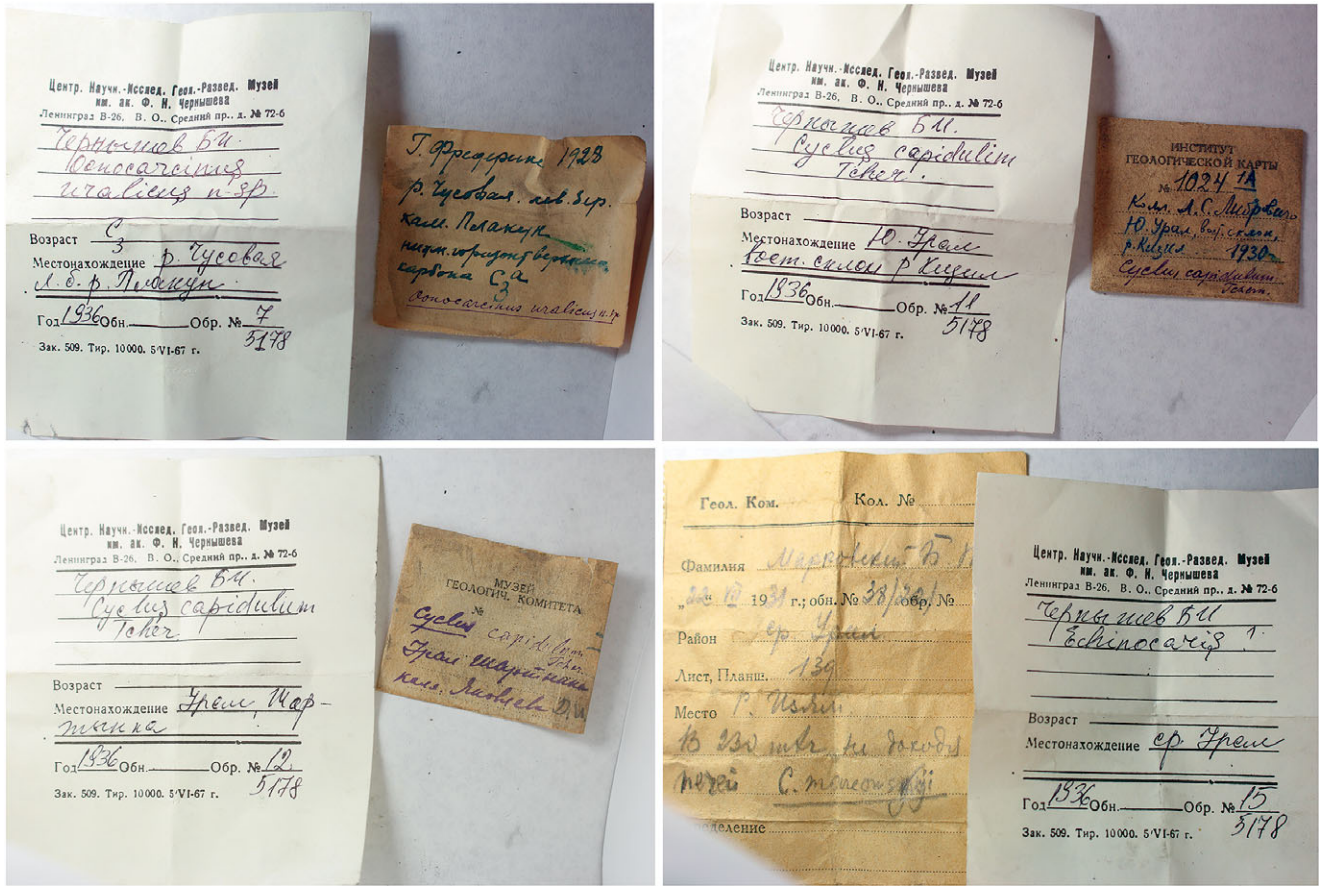 Центр. Научн.-Исслед. Геол.-Развед. Музей
им. ак. Ф. Н. Чернышева
Ленинград В-26, В. О., Средний пр., д. № 72-б
Чернышев Б.И.
Oonocarcinus
uralicus n. sp.
Возраст C3
Местонахождение р. Чусовая
л. б. р. Плакун
Год 1936 Обн. Обр. № 7
5178
Зак. 509. Тир. 10000. 5/VI-67 г.
Г. Фредерикс 1928
р. Чусовая. лев. бер.
кам. Плакун
нижн. горизонт верхнего
карбона C3a
Oonocarcinus uralicus n. sp.
Центр. Научн.-Исслед. Геол.-Развед. Музей
им. ак. Ф. Н. Чернышева
Ленинград В-26, В. О., Средний пр., д. № 72-б
Чернышев Б.И.
Cyclus capidulum
Tcher.
Возраст
Местонахождение Ю. Урал
Вост. склон р Кизил
Год 1936 Обн. Обр. № 11
5178
Зак. 509. Тир. 10000. 5/VI-67 г.
ИНСТИТУТ
ГЕОЛОГИЧЕСКОЙ КАРТЫ
№ 1024 1А
Колл. Л. С. Либрович
Ю. Урал, вост. склон,
р. Кизил 1930 г
Cyclus capidulum
Tchern.
Центр. Научн.-Исслед. Геол.-Развед. Музей
им. ак. Ф. Н. Чернышева
Ленинград В-26, В. О., Средний пр., д. № 72-б
Чернышев Б.И.
Cyclus capidulum
Tcher
Возраст
Местонахождение Урал, Шар-
тымка
Год 1936 Обн. Обр. № 12
5178
Зак. 509. Тир. 10000. 5/VI-67 г.
МУЗЕЙ
ГЕОЛОГИЧ. КОМИТЕТА
№
Cyclus capidulum
Tchern.
Урал Шартымка
колл. Яковлев
Геол. Ком. Кол. №
Фамилия Марковский Б.
„22“ VII 1931 г.; обн. № 38/ обр. №
Район ср. Урал
Лист, Планш. 139
Место Р.
В 230 mtr не доходя
печей
ределение
Центр. Научн.-Исслед. Геол.-Развед. Музей
им. ак. Ф. Н. Чернышева
Ленинград В-26, В. О., Средний пр., д. № 72-б
Чернышев Б.И
Echinocaris ?
Возраст
Местонахождение ср. Урал
Год 1936 Обн. Обр. № 15
5178
Зак. 509. Тир. 10000. 5/VI-67 г.